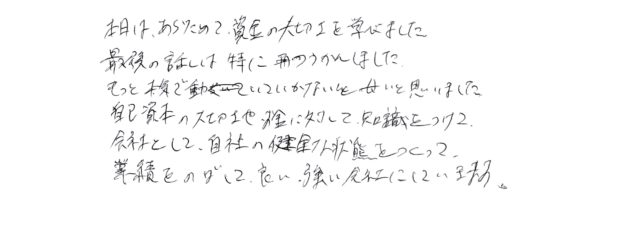 本日は、あらためて、資金の大切さを学びました
最後の話しは特に
もっと本気で動いていかないと せいと思いました
自己資本の大切さや、金に対して、知識をつけて、
会社として、自社の健全な状態をつくって、
業績をのばして、良い、強い会社にしていきます。